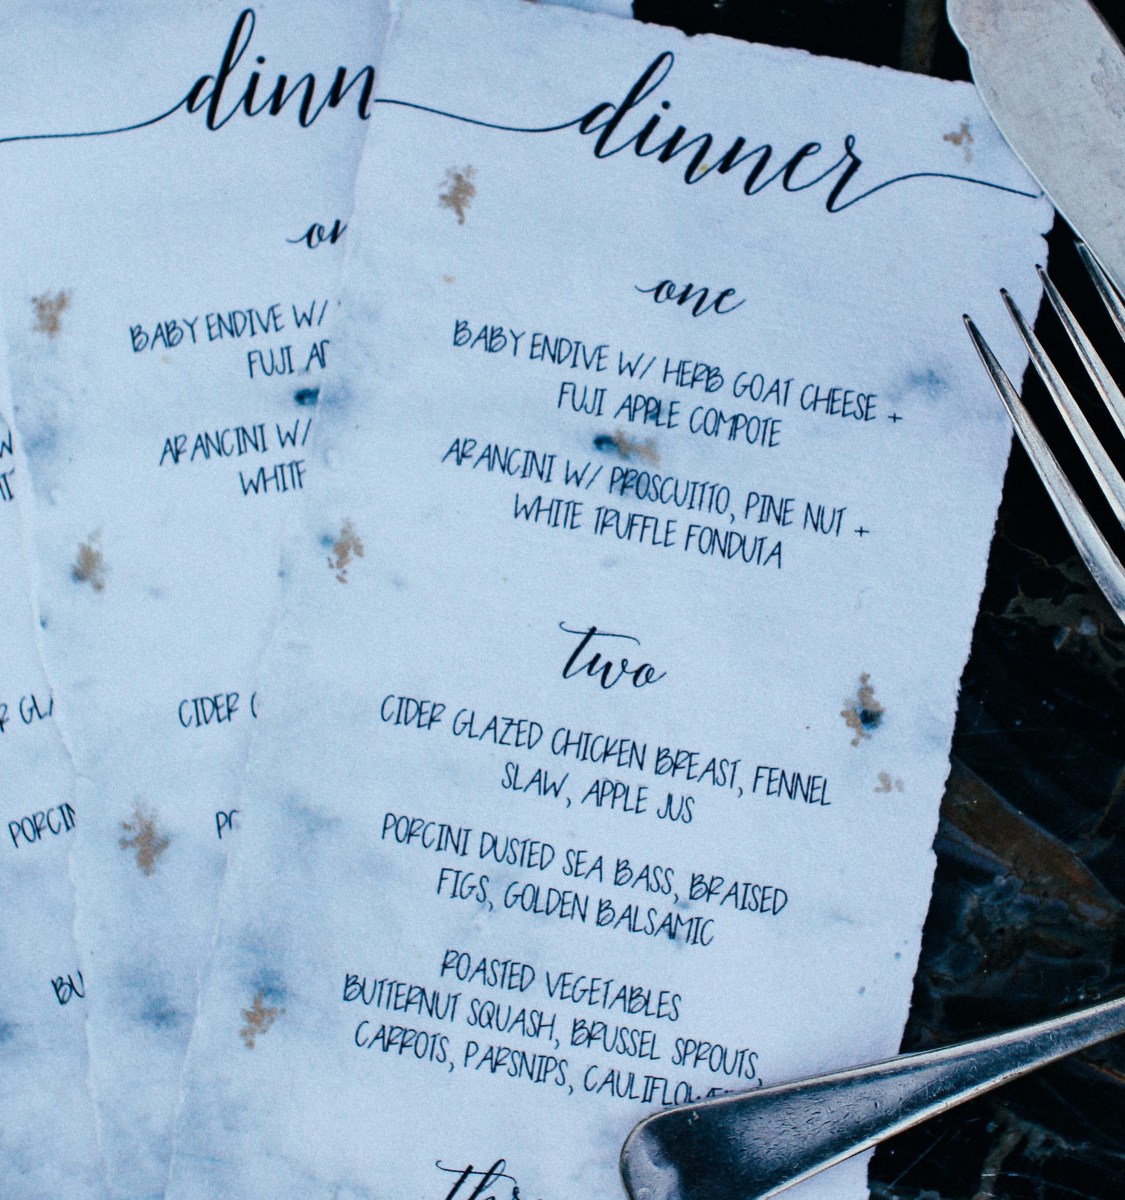 dinner
one
BABY ENDIVE W/ HERB GOAT CHEESE +
FUJI APPLE COMPOTE
ARANCINI W/ PROSCUITTO, PINE NUT +
WHITE TRUFFLE FONDUTA
two
CIDER GLAZED CHICKEN BREAST, FENNEL
SLAW, APPLE JUS
PORCINI DUSTED SEA BASS, BRAISED
FIGS, GOLDEN BALSAMIC
ROASTED VEGETABLES
BUTTERNUT SQUASH, BRUSSEL SPROUTS,
CARROTS, PARSNIPS, CAULIFLOWER
dinn
BABY ENDIVE W/
FUJI
ARANCINI W/
CIDER